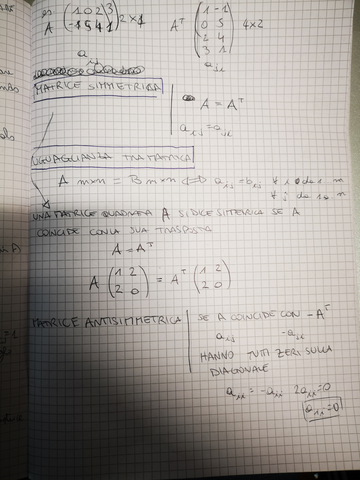 es
A (1 0 2 3
-1 5 4 1) 2×1
A^T (1 -1
0 5
2 4
3 1) 4×2
a_ij
a_ji
MATRICE SIMMETRICA
A = A^T
a_ij = a_ji
UGUAGLIANZA TRA MATRICI
A m×n = B m×n ⇔ a_ij = b_ij ∀ i da 1 m
∀ j da 1 a n
UNA MATRICE QUADRATA A SI DICE SIMMETRICA SE A
COINCIDE CON LA SUA TRASPOSTA
A = A^T
A (1 2
2 0) = A^T (1 2
2 0)
MATRICE ANTISIMMETRICA
SE A COINCIDE CON -A^T
a_ij -a_ji
HANNO TUTTI ZERI SULLA
DIAGONALE
a_ii = -a_ii 2a_ii = 0
a_ii = 0